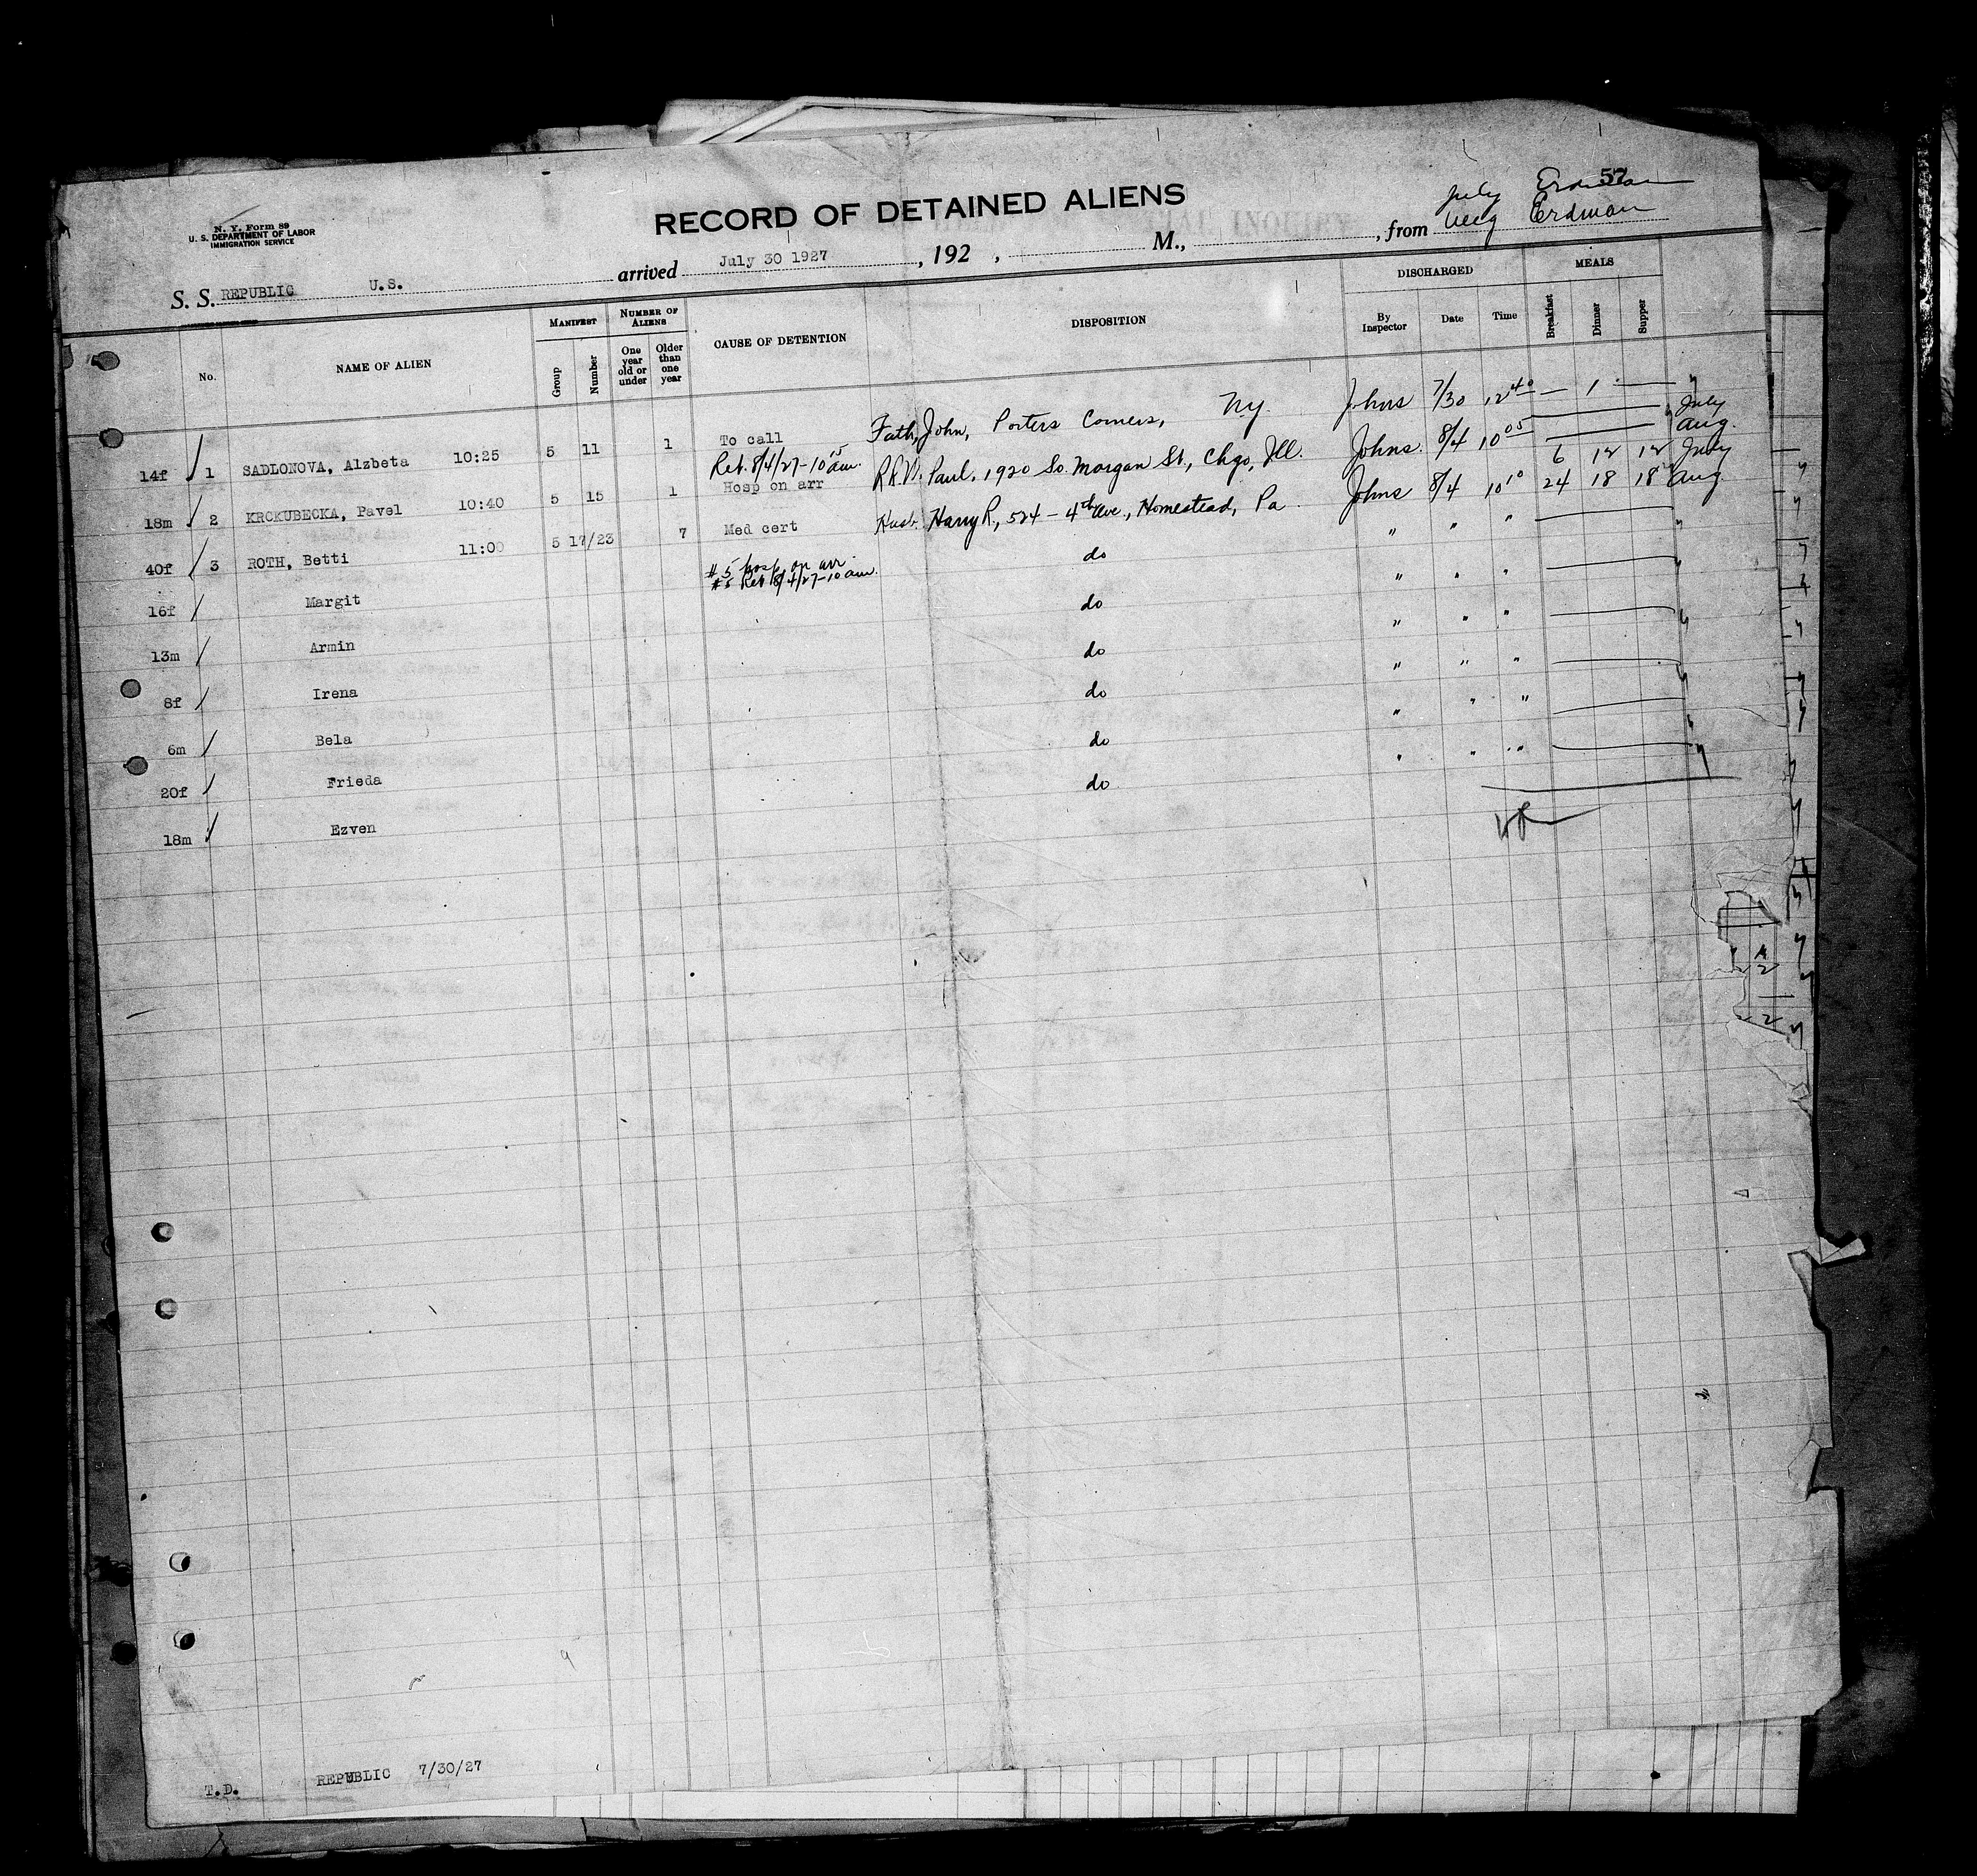 57
N. Y. Form 89
U. S. DEPARTMENT OF LABOR
IMMIGRATION SERVICE
RECORD OF DETAINED ALIENS
July
S. S. REPUBLIC U.S. arrived July 30 1927, 192 , M., , from Aug Erdman
No. NAME OF ALIEN MANIFEST Group Number NUMBER OF ALIENS One year old or under Older than one year CAUSE OF DETENTION DISPOSITION DISCHARGED By Inspector Date Time MEALS Breakfast Dinner Supper
14f 1 SADLONOVA, Alzbeta 10:25 5 11 1 To call Father, John, Porters Corners, N.Y. Johns 7/30 12 40 — 1 —
Ret. 8/4/27 - 10 15 am. July
18m 2 KRCKUBECKA, Pavel 10:40 5 15 1 Hosp on arr Paul, 1920 So. Morgan St., Chgo, Ill. Johns 8/4 10 05 Aug.
6 12 12 July
40f 3 ROTH, Betti 11:00 5 17/23 7 Med cert Husb. Harry R., 524 - 4th Ave., Homestead, Pa. Johns 8/4 10 10 24 18 18 Aug.
#5 hosp on arr
#5 Ret 8/4/27 - 10 am.
16f Margit do " " "
13m Armin do " " "
8f Irena do " " "
6m Bela do " " "
20f Frieda do " " "
18m Ezven do " " "
T.D. REPUBLIC 7/30/27